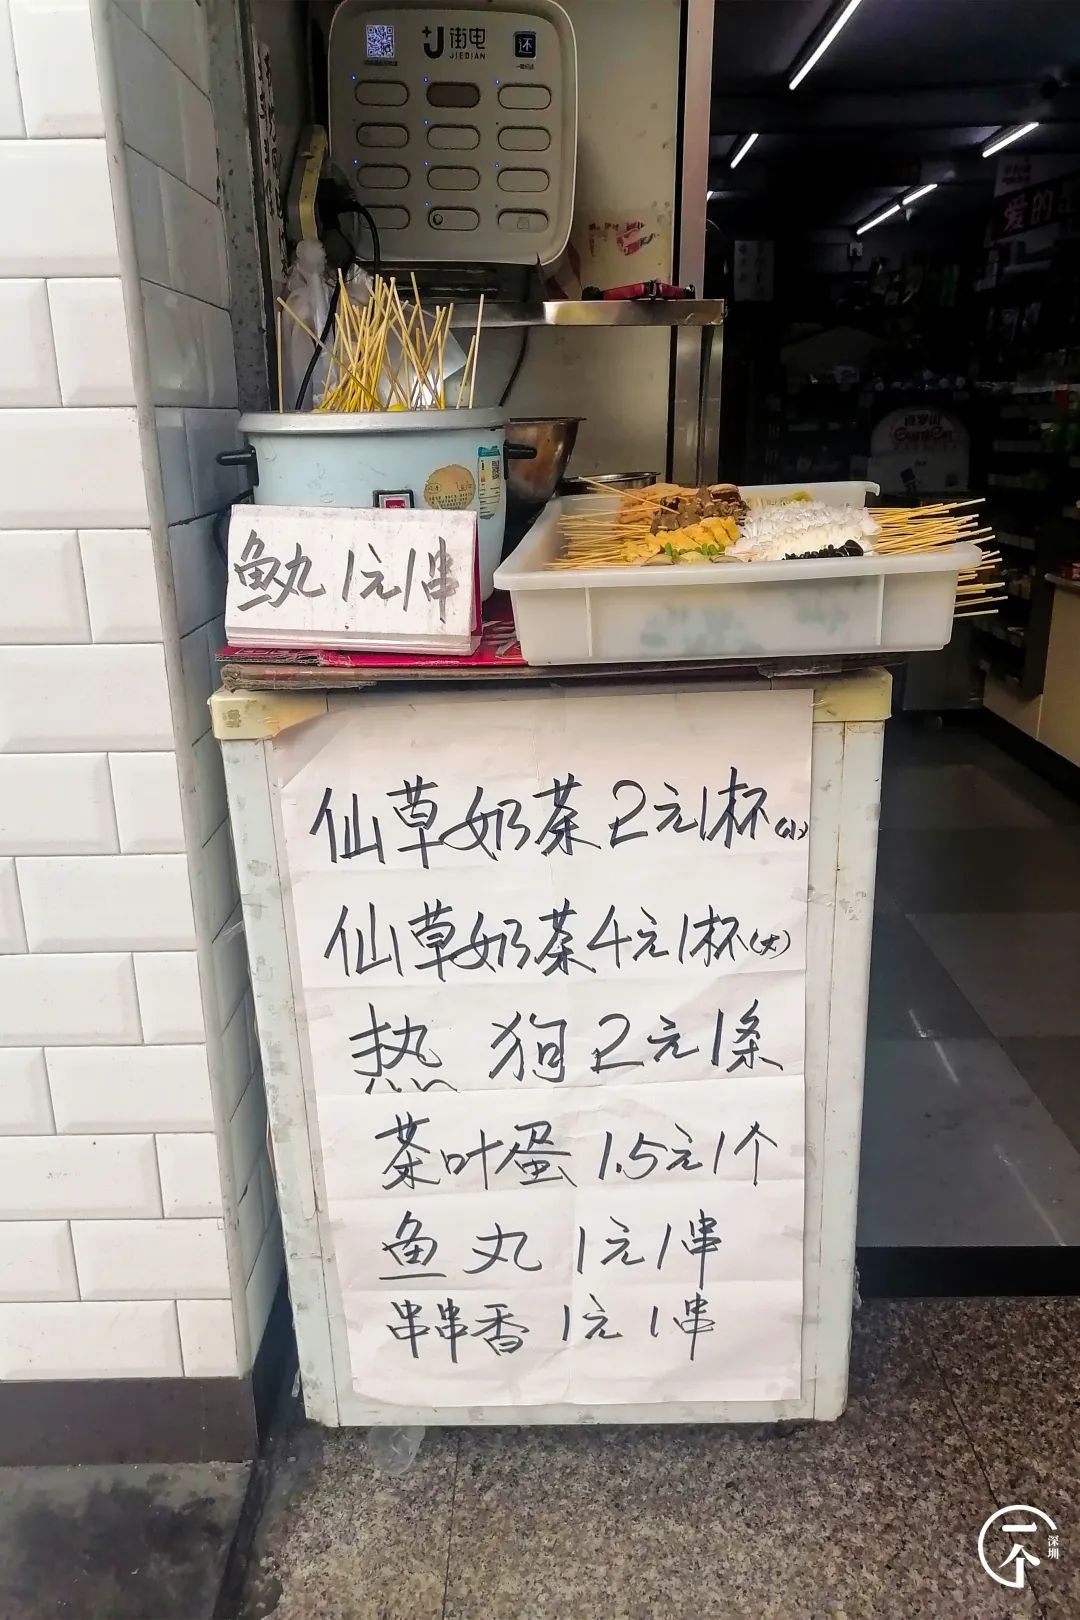 街电
JIEDIAN
还
爱的
鱼丸1元1串
仙草奶茶2元1杯(小)
仙草奶茶4元1杯(大)
热狗2元1条
茶叶蛋1.5元1个
鱼丸1元1串
串串香1元1串
一个
深圳